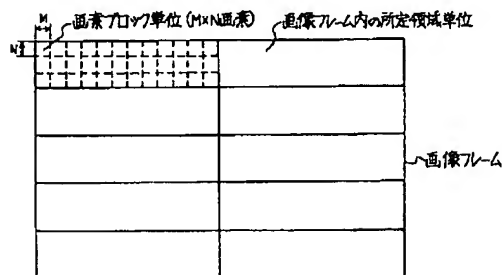 M
画素ブロック単位(M×N画素)
画像フレーム内の所定領域単位
N
画像フレーム